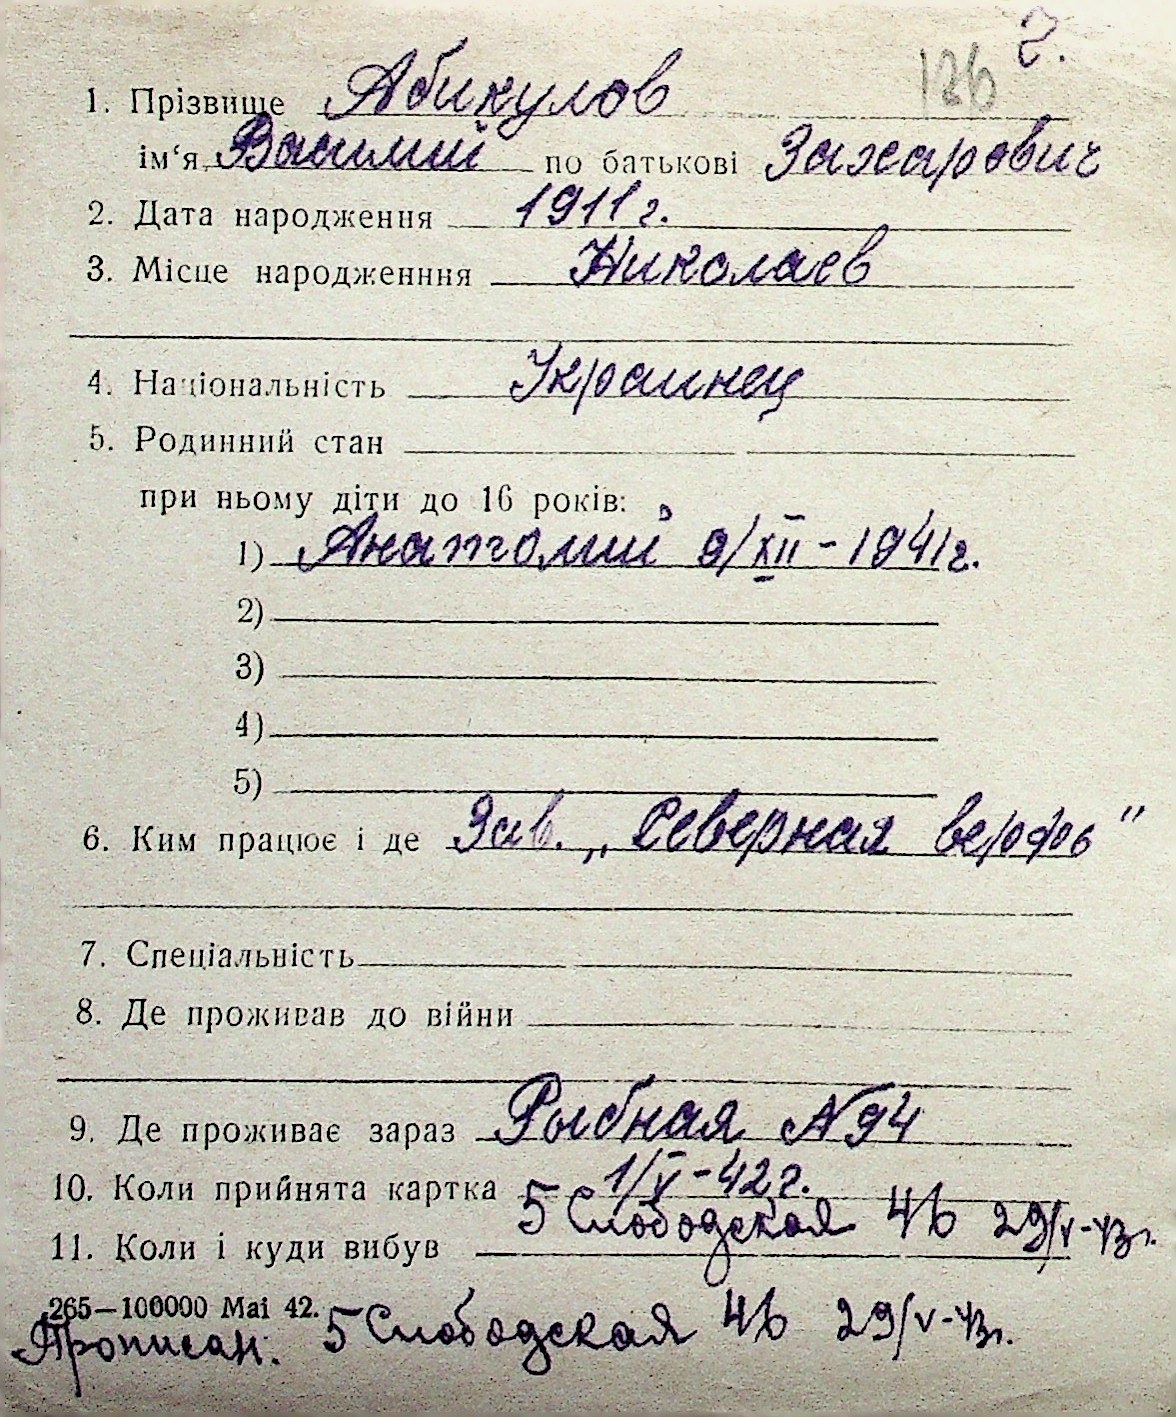 126 2.
1. Прізвище Абикулов
ім‘я Василий по батькові Захарович
2. Дата народження 1911 г.
3. Місце народженння Николаев
4. Національність Украинец
5. Родинний стан
при ньому діти до 16 років:
1) Анатолий 9/XII - 1941 г.
2)
3)
4)
5)
6. Ким працює і де Зав. „Северная верфь"
7. Спеціальність
8. Де проживав до війни
9. Де проживає зараз Рыбная № 94
10. Коли прийнята картка 1/V - 42 г.
5 Слободская 46 29/V-43 г.
11. Коли і куди вибув
265—100000 Маі 42.
Прописан: 5 Слободская 46 29/V-43 г.